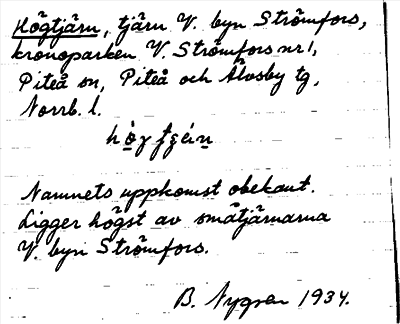 Högtjärn, tjärn V. byn Strömfors,
kronoparken V. Strömfors nr 1,
Piteå sn, Piteå och Älvsby tg,
Norrb. l.
Namnets uppkomst obekant.
Ligger högst av småtjärnarna
V. byn Strömfors.
B. Nygren 1934.